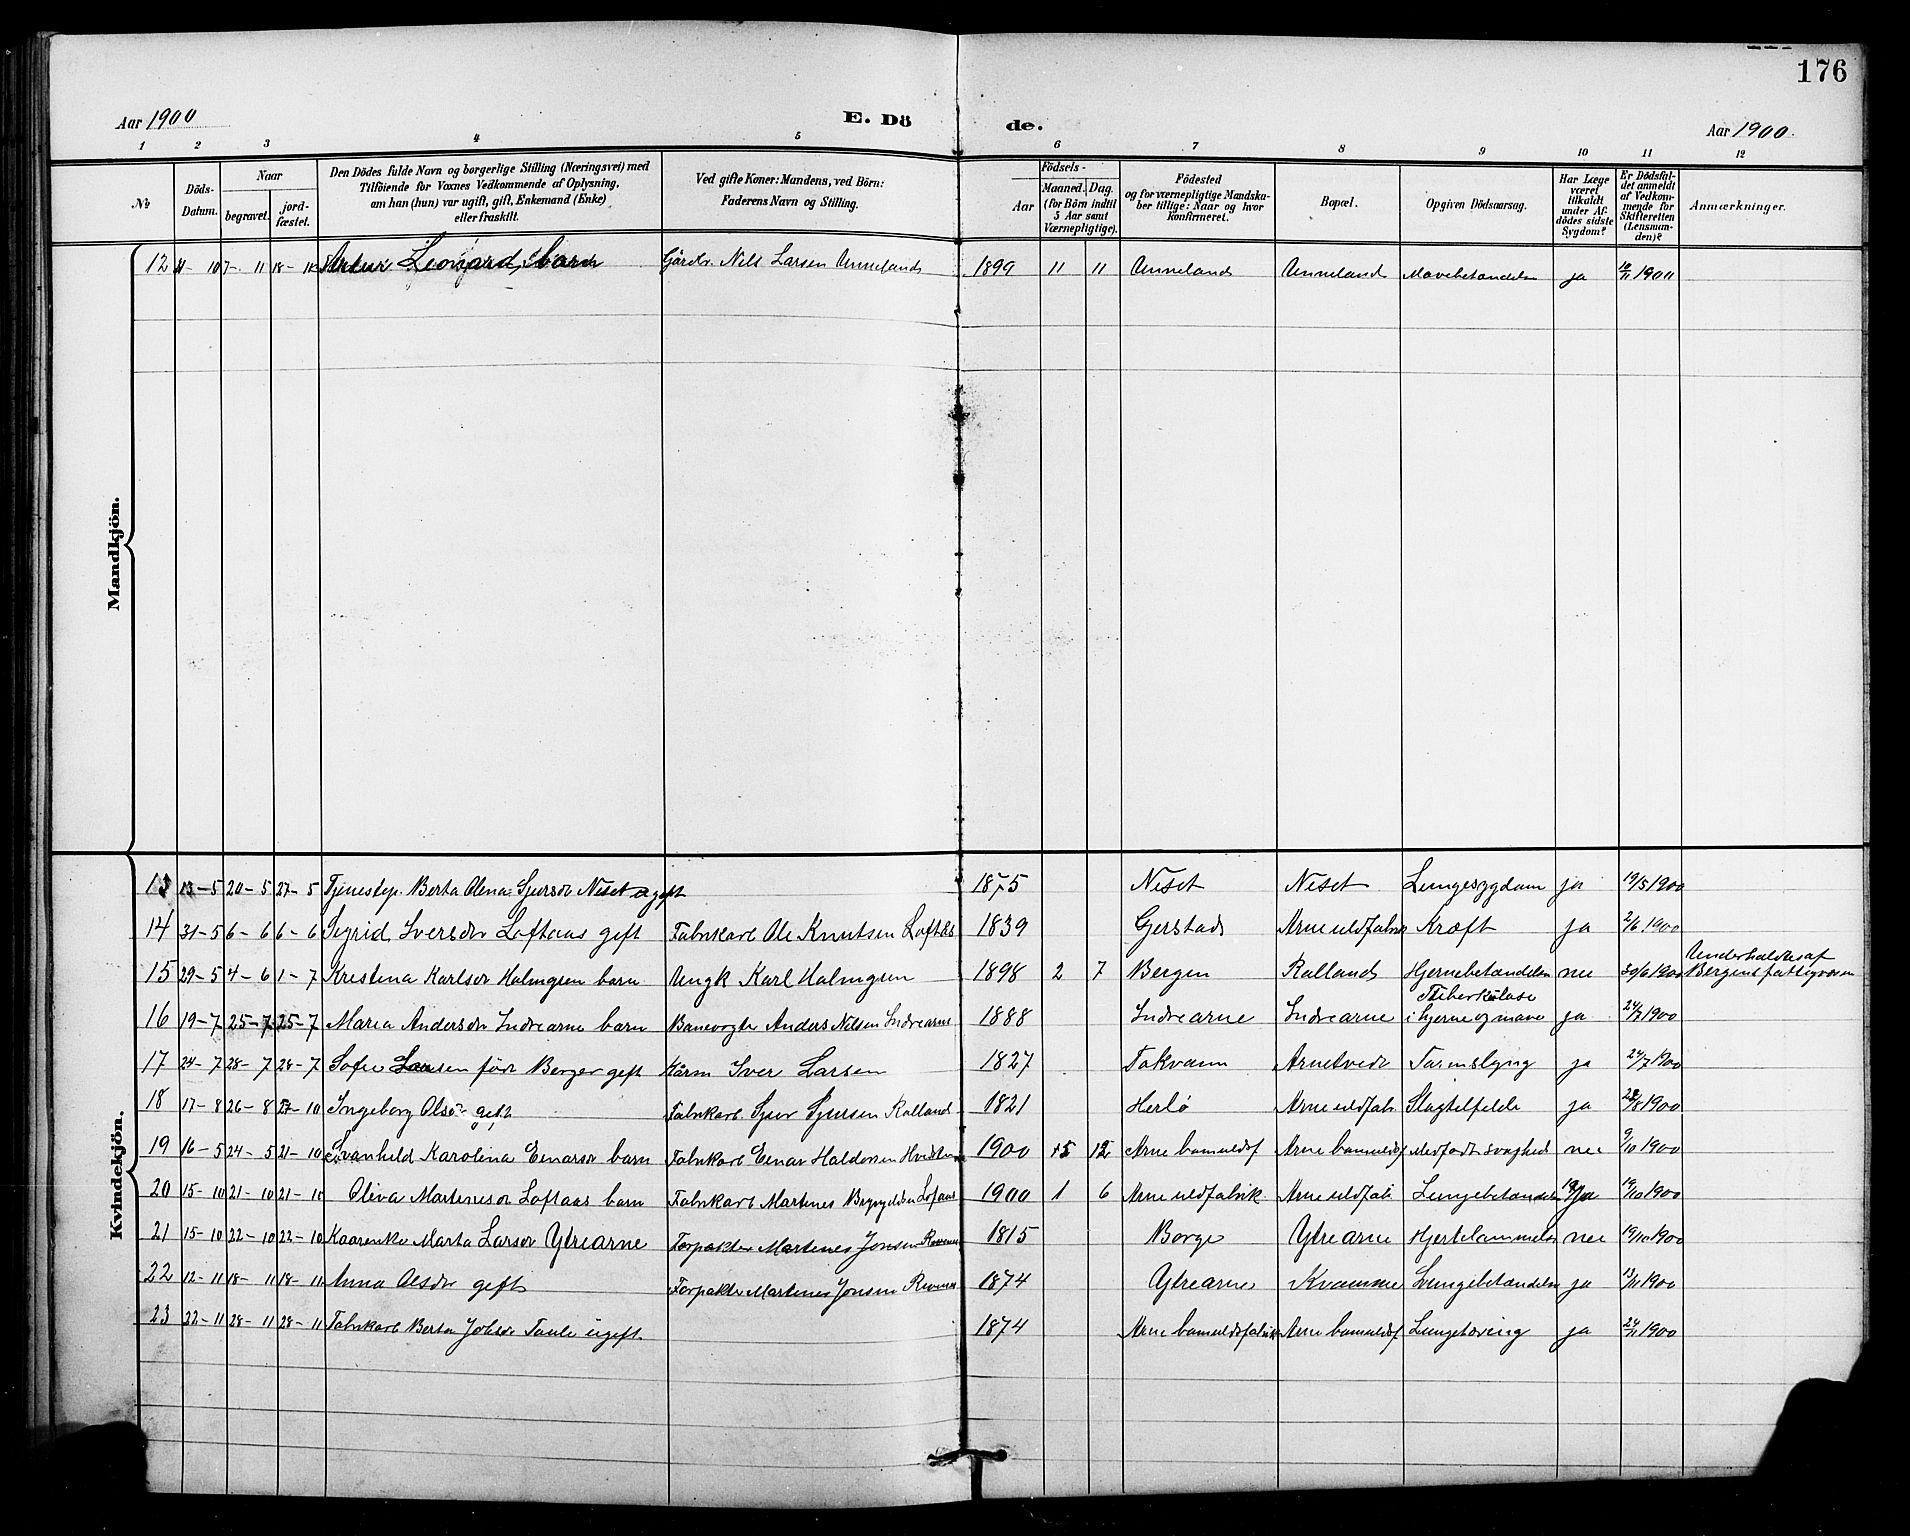 176
Aar 1900
E. Dö
de.
Aar 1900.
1 2 3 4 5 6 7 8 9 10 11 12
No
Döds-Datum.
Naar
begravet.
jord-fæstet.
Den Dödes fulde Navn og borgerlige Stilling (Næringsvei) med
Tilföiende for Voxnes Vedkommende af Oplysning,
om han (hun) var ugift, gift, Enkemand (Enke)
eller fraskilt.
Ved gifte Koner: Mandens, ved Börn:
Faderens Navn og Stilling.
Födsels-
Aar
Maaned. Dag.
(for Börn indtil
5 Aar samt
Værnepligtige).
Födested
og for værnepligtige Mandska-
ber tillige: Naar og hvor
konfirmeret.
Bopæl.
Opgiven Dödsaarsag.
Har Læge
været
tilkaldt
under Af-
dödes sidste
Sygdom?
Er Dödsfal-
det anmeldt
af Vedkom-
mende for
Skifteretten
(Lensman-
den)?
Anmærkninger.
Mandkjön.
12 7- 11 18- Leonard, barn Gårdbr. Nils Larsen Unneland 1899 11 11 Unneland Unneland Mavebetændelse ja 1900
Kvindekjön.
13 13-5 20-5 27-5 Tjenestep. Berta Olena Sjursdr Neset ugift 1875 Neset Neset Lungesygdom ja 19/5 1900
14 31-5 6-6 6-6 Sigrid Iversdr Loftaas gift Fabrikarb Ole Knutsen Loftås 1839 Gjerstad Arne uldfabrik Kræft ja 2/6 1900
15 29-5 4-6 1-7 Kristina Karlsdr Holmgren barn Ungk Karl Holmgren 1898 2 7 Bergen Ralland Hjernebetændelse nei 30/6 1900 Underholdtes af Bergens fattigvæsen
16 19-7 25-7 25-7 Maria Andersdr Indrearne barn Banevogter Anders Nilsen Indrearne 1888 Indrearne Indrearne Tuberkulose i hjerne og mave ja 24/7 1900
17 24-7 28-7 28-7 Sofie Larsen født Berger gift Kårm Iver Larsen 1827 Takvam Arnetveit Tarmslyng ja 27/7 1900
18 17-8 26-8 27-10 Ingeborg Olsdr gift Fabrikarb. Sjur Sjursen Ralland 1821 Herlö Arne uldfabr Slagtilfelde ja 22/8 1900
19 16-5 24-5 21-10 Svanhild Karolina Einarsdr barn Fabrikarb Einar Haldorsen 1900 5 12 Arne bomuldsf Arne bomuldsf Medfødt svaghed nei 9/10 1900
20 15-10 21-10 21-10 Oliva Martinesdr Loftaas barn Fabrikarb Martines Brynjelsen Loftaas 1900 1 6 Arne uldfabrik Arne uldfab Lungebetændelse ja 19/10 1900
21 15-10 22-10 22-10 Kaarenke Marta Larsdr Ytrearne Forpakter Martines Jonsen 1815 Borge Ytrearne Hjertelammelse nei 19/10 1900
22 12-11 18-11 18-11 Anna Olsdr gift Forpakter Martines Jonsen 1874 Ytrearne Kvamme Lungebetændelse ja 13/11 1900
23 22-11 28-11 28-11 Fabrikarb Berta Johsdr Taule ugift. 1874 Arne bomuldsfabrik Arne bomuldsf Lungetæring ja 24/11 1900